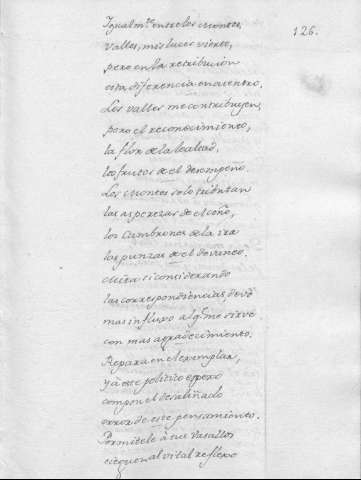 126.
Igual mte. entre los montes,
valles, mis luces vierte,
pero en la retribución
esta diferencia encuentro.
Los valles me contribuyen,
por el reconocimiento,
la flor de la lealtad,
los frutos de el desempeño.
Los montes solo tributan
las asperezas de el ceño,
los Cambrones de la ira
las punzas de el devaneo.
Mira si considerando
las correspondiencias, devo
mas influxo al q. me sirve
con mas agradecimiento.
Repara en el exemplar,
y a este politico espexo
compon el desaliñado
error de este pensamiento.
Permitele à tus Vasallos
lleguen al vital reflexo